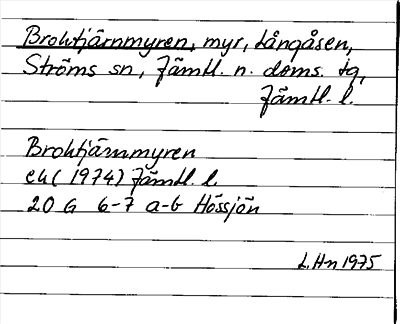 Broktjärnmyren, myr, Långåsen,
Ströms sn, Jämtl. n. doms. tg,
Jämtl. l.
Broktjärnmyren
ek (1974) Jämtl. l.
20 G 6-7 a-b Hössjön
L.Hn 1975